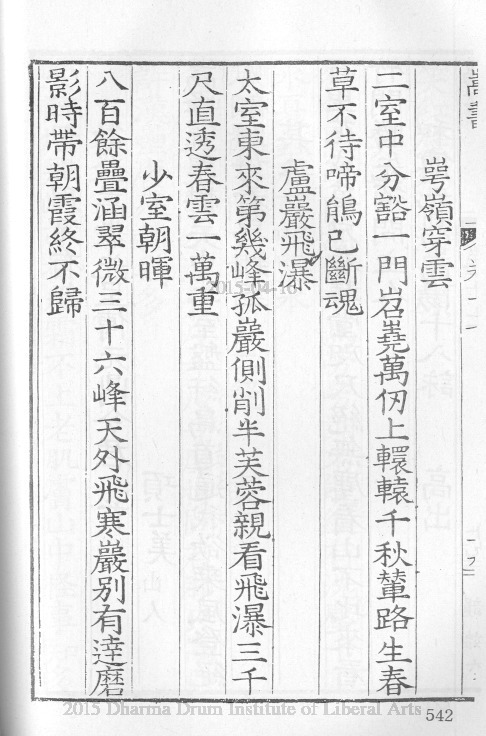 嵩書
萼嶺穿雲
二室中分豁一門岧嶤萬仞上轘轅千秋輦路生春
草不待啼鵑已斷魂
盧巖飛瀑
太室東來第幾峰孤巖側削半芙蓉親看飛瀑三千
尺直透春雲一萬重
少室朝暉
八百餘疊涵翠微三十六峰天外飛寒巖別有達磨
影時帶朝霞終不歸
2015-04-16
2015 Dharma Drum Institute of Liberal Arts
542